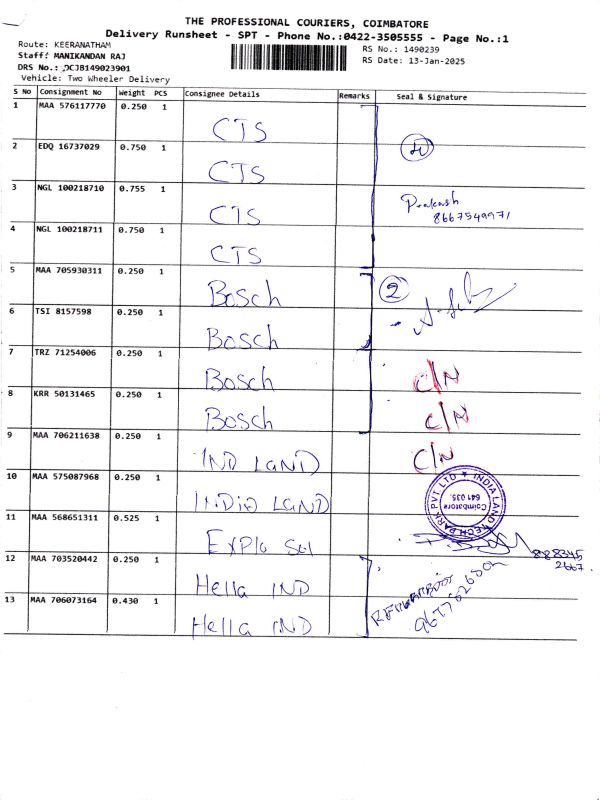 THE PROFESSIONAL COURIERS, COIMBATORE
Delivery Runsheet - SPT - Phone No.:0422-3505555 - Page No.:1
Route: KEERANATHAM
RS No.: 1490239
Staff: MANIKANDAN RAJ
RS Date: 13-Jan-2025
DRS No.: DCJB149023901
Vehicle: Two Wheeler Delivery
S No Consignment No Weight PCS Consignee Details Remarks Seal & Signature
1 MAA 576117770 0.250 1
CTS
2 EDQ 16737029 0.750 1
4
CTS
3 NGL 100218710 0.755 1
Prakash
CTS 8667549971
4 NGL 100218711 0.750 1
CTS
5 MAA 705930311 0.250 1
Bosch 2
6 TSI 8157598 0.250 1
Bosch
7 TRZ 71254006 0.250 1
Bosch C/N
8 KRR 50131465 0.250 1
Bosch C/N
9 MAA 706211638 0.250 1
IND LAND C/N
10 MAA 575087968 0.250 1
INDIA LAND
INDIA LAND TECH PARK PVT LTD
Coimbatore
641 035.
11 MAA 568651311 0.525 1
Explo Sol
12 MAA 703520442 0.250 1
828345
2667.
Hella IND
13 MAA 706073164 0.430 1
Hella IND